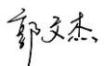 郭文杰